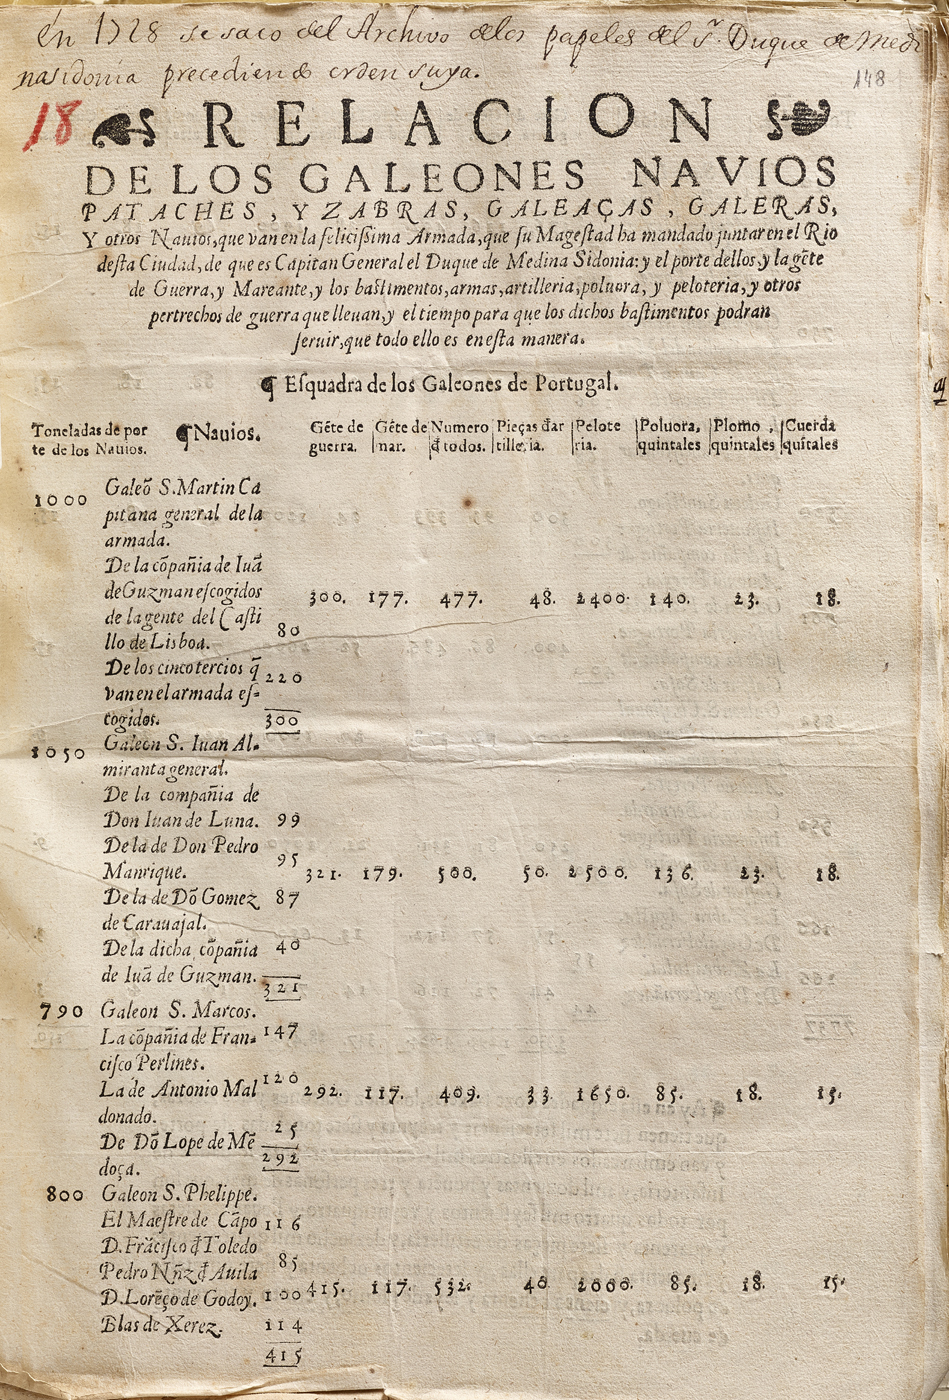 En 1728 se saco del Archivo delos papeles del S.r Duque de Medi
nasidonia precediendo orden suya.
148
18 RELACION
DE LOS GALEONES NAVIOS
PATACHES, YZABRAS, GALEAÇAS, GALERAS,
Y otros Nauios, que van en la felicißima Armada, que ſu Mageſtad ha mandado juntar en el Rio
deſta Ciudad, de que es Capitan General el Duque de Medina Sidonia: y el porte dellos, y la gẽte
de Guerra, y Mareante, y los baſtimentos, armas, artilleria, poluora, y peloteria, y otros
pertrechos de guerra que lleuan, y el tiempo para que los dichos baſtimentos podran
ſeruir, que todo ello es en eſta manera.
¶ Eſquadra de los Galeones de Portugal.
Toneladas de por ¶ Nauios. Gẽte de Gẽte de Numero Pieças d̃ar Pelote Poluora, Plomo, Cuerda
te de los Nauios. guerra. mar. d̃ todos. tilleria. ria. quintales quintales quĩtales
1000 Galeõ S. Martin Ca
pitana general de la
armada.
De la cõpañia de Iuã
de Guzman eſcogidos 300. 177. 477. 48. 2400. 140. 23. 18.
de la gente del Caſti
llo de Lisboa. 80
De los cinco tercios q̃ 220
van en el armada eſ-
cogidos. 300
1050 Galeon S. Iuan Al-
miranta general.
De la compañia de
Don Iuan de Luna. 99
De la de Don Pedro
Manrique. 95 321. 179. 500. 50. 2500. 136. 23. 18.
De la de Dõ Gomez 87
de Carauajal.
De la dicha cõpañia 40
de Iuã de Guzman. 321
790 Galeon S. Marcos.
La cõpañia de Fran- 147
ciſco Perlines.
La de Antonio Mal 120 292. 117. 409. 33. 1650. 85. 18. 15.
donado.
De Dõ Lope de Mẽ 25
doça. 292
800 Galeon S. Phelippe.
El Maeſtre de Cãpo 116
D. Frãciſco d̃ Toledo
Pedro Nñz d̃ Auila 85
D. Lorẽço de Godoy. 100 415. 117. 532. 40. 2000. 85. 18. 15.
Blas de Xerez. 114
415